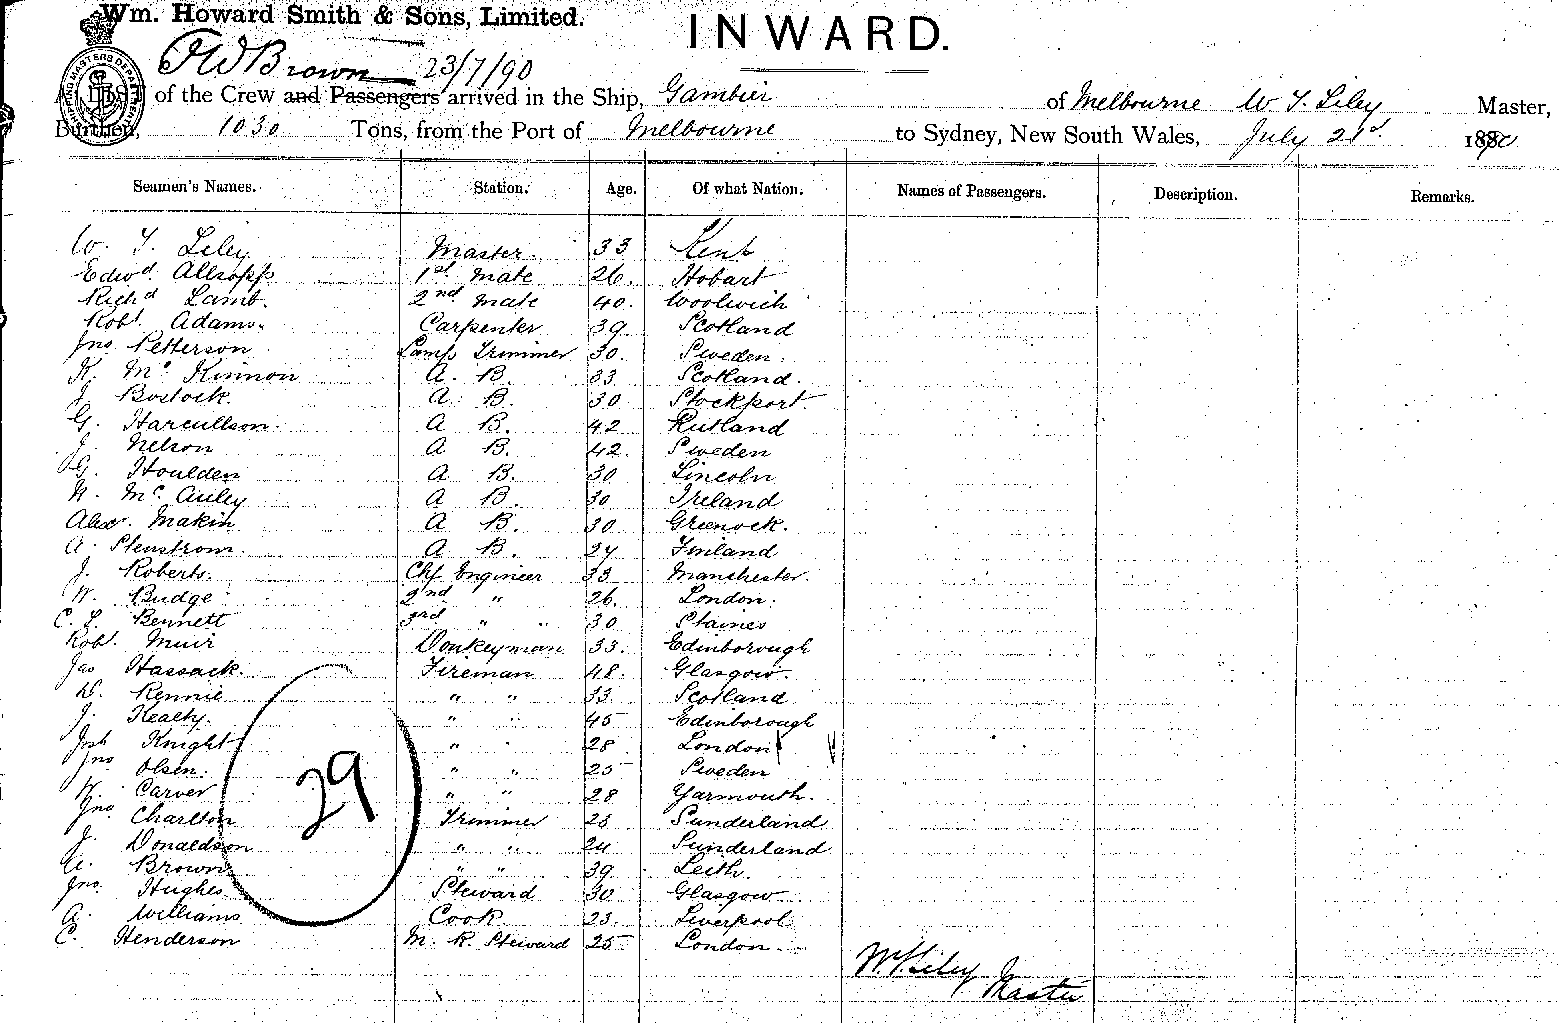 Wm. Howard Smith & Sons, Limited.
INWARD.
SHIPPING MASTERS DEPARTMENT
Brown 23/7/90
A LIST of the Crew and Passengers arrived in the Ship, Gambier of Melbourne W T. Liley Master,
Burthen, 1030 Tons, from the Port of Melbourne to Sydney, New South Wales, July 21st 1890
Seamen's Names. Station. Age. Of what Nation. Names of Passengers. Description. Remarks.
W. T. Liley Master. 33 Kent
Edwd. Allsopp 1st Mate 26. Hobart
Richd Lamb. 2nd Mate 40. Woolwich
Robt. Adams. Carpenter 39 Scotland
Jno Petterson Lamp Trimmer 30. Sweden.
K. Mc Kinnon A. B. 33 Scotland.
J. Bostock. A. B. 30 Stockport
G. Harcullson A B. 42 Rutland
J. Nelson A B. 42. Sweden
G. Houlden A B. 30 Lincoln
N. Mc Auley A B. 30 Ireland
Alexr. Makin A B. 30 Greenock.
A. Stenstrom. A B. 24 Finland
J. Roberts. Chf Engineer 33 Manchester.
W. Budge 2nd " 26. London.
C. L. Bennett 3rd " " 30 Staines
Robt. Muir Donkeyman 33. Edinborough
Jas Hassack. Fireman 48. Glasgow.
D. Rennie " " 33 Scotland
J. Kealty. " " 45 Edinborough
Josh Knight " " 28 London
Jno Olsen. " " 25 Sweden
W. Carver " " 28 Yarmouth.
Jno Charlton Trimmer 23 Sunderland
J. Donaldson " " 24 Sunderland
A. Brown " " 39 Leith.
Jno. Hughes Steward 30 Glasgow
A. Williams Cook 23. Liverpool
C. Henderson M. R. Steward 25 London.
29
W T Liley Master